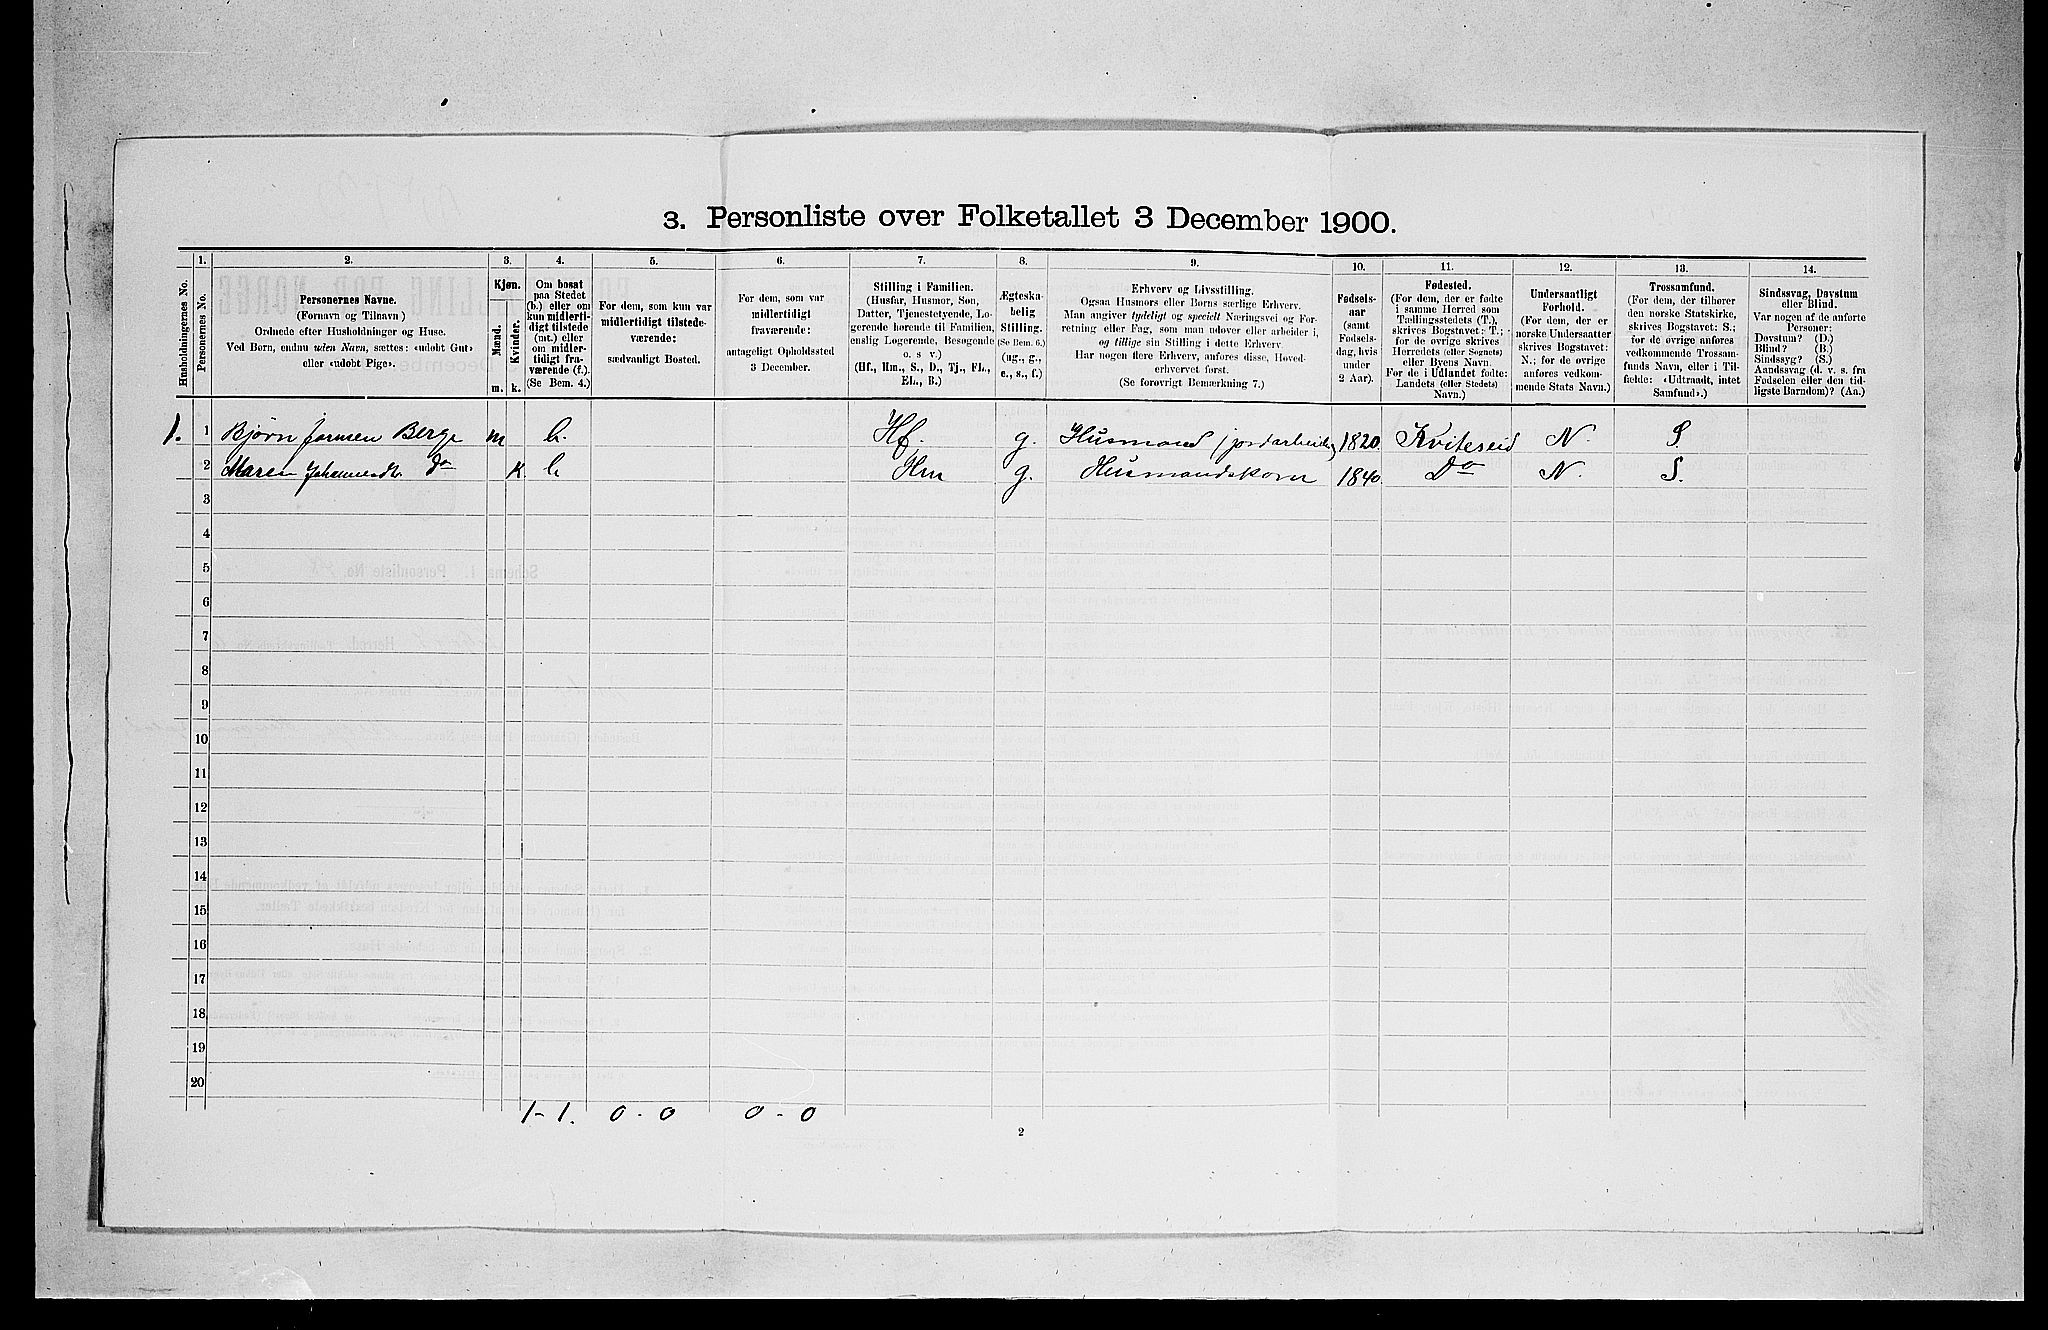 3. Personliste over Folketallet 3 December 1900.
Husholdningernes No.
1.
Personernes No.
2.
Personernes Navne.
(Fornavn og Tilnavn)
Ordnede efter Husholdninger og Huse.
Ved Børn, endnu uden Navn, sættes: «udøbt Gut»
eller «udøbt Pige».
3.
Kjøn.
Mænd.
Kvinder.
m. k.
4.
Om bosat
paa Stedet
(b.) eller om
kun midlerti-
digt tilstede
(mt.) eller
om midler-
tidigt fra-
værende (f.).
(Se Bem. 4.)
5.
For dem, som kun var
midlertidigt tilstede-
værende:
sædvanligt Bosted.
6.
For dem, som var
midlertidigt
fraværende:
antageligt Opholdssted
3 December.
7.
Stilling i Familien.
(Husfar, Husmor, Søn,
Datter, Tjenestetyende, Lo-
gerende hørende til Familien,
enslig Logerende, Besøgende
o. s v.)
(Hf., Hm., S., D., Tj., FL.,
EL., B.)
8.
Ægteska-
belig
Stilling.
(Se Bem. 6.)
(ug., g.,
e., s., f.)
9.
Erhverv og Livsstilling.
Ogsaa Husmors eller Børns særlige Erhverv.
Man angiver tydeligt og specielt Næringsvei og For-
retning eller Fag, som man udøver eller arbeider i,
og tillige sin Stilling i dette Erhverv.
Har nogen flere Erhverv, anføres disse, Hoved-
erhvervet først.
(Se forøvrigt Bemærkning 7.)
10.
Fødsels-
aar
(samt
Fødsels-
dag, hvis
under
2 Aar).
11.
Fødested.
(For dem, der er fødte
i samme Herred som
Tællingsstedets (T.),
skrives Bogstavet: T.;
for de øvrige skrives
Herredets (eller Sognets)
eller Byens Navn.
For de i Udlandet fødte:
Landets (eller Stedets)
Navn.)
12.
Undersaatligt
Forhold.
(For dem, der er
norske Undersaatter
skrives Bogstavet:
N.; for de øvrige
anføres vedkom-
mende Stats Navn.)
13.
Trossamfund.
(For dem, der tilhører
den norske Statskirke,
skrives Bogstavet: S.;
for de øvrige anføres
vedkommende Trossam-
funds Navn, eller i Til-
fælde: «Udtraadt, intet
Samfund».)
14.
Sindssvag, Døvstum
eller Blind.
Var nogen af de anførte
Personer:
Døvstum? (D.)
Blind? (B.)
Sindssyg? (S.)
Aandssvag (d. v. s. fra
Fødselen eller den tid-
ligste Barndom)? (Aa.)
1. 1 Bjørn Jormsen Berge m b. Hf. g. Husmand /jordarbeider 1820. Kviteseid N. S.
2 Maren Johannesdt. Do k b Hm g. Husmandskone 1840. Do N. S.
3
4
5
6
7
8
9
10
11
12
13
14
15
16
17
18
19
20
1-1. 0-0 0-0
2